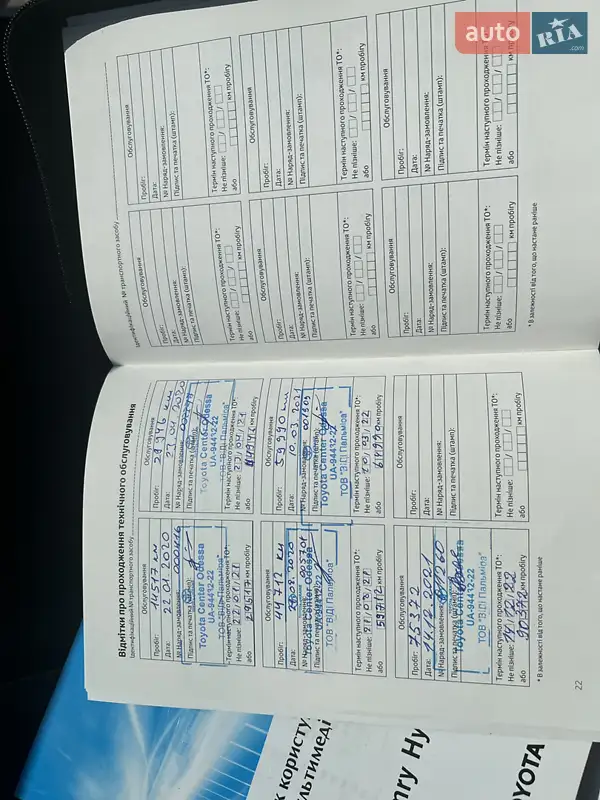 auto
RIA
.com
Відмітки про проходження технічного обслуговування
Ідентифікаційний № транспортного засобу
Обслуговування
Пробіг: 14517 км
Дата: 2020
№ Наряд-замовлення:
Підпис та печатка (штамп):
Toyota Center Odessa
UA-94412-22
ТОВ "ВІДІ Пальміра"
Термін наступного проходження ТО*:
Не пізніше: 22/01/21
або 29517 км пробігу
Обслуговування
Пробіг: 29946 км
Дата: 2020
№ Наряд-замовлення:
Підпис та печатка (штамп):
Toyota Center Odessa
UA-94412-22
ТОВ "ВІДІ Пальміра"
Термін наступного проходження ТО*:
Не пізніше:
або км пробігу
Обслуговування
Пробіг: 44712 км
Дата: 08.2020
№ Наряд-замовлення:
Підпис та печатка (штамп):
Toyota Center Odessa
UA-94412-22
ТОВ "ВІДІ Пальміра"
Термін наступного проходження ТО*:
Не пізніше:
або 59712 км пробігу
Обслуговування
Пробіг: 59590 км
Дата: 10.03.2021
№ Наряд-замовлення:
Підпис та печатка (штамп):
Toyota Center Odessa
UA-94412-22
ТОВ "ВІДІ Пальміра"
Термін наступного проходження ТО*:
Не пізніше: 10/03/22
або км пробігу
Обслуговування
Пробіг: 75372
Дата: 14.12.2021
№ Наряд-замовлення:
Підпис та печатка
Toyota Center
UA-94412-22
ТОВ "ВІДІ Пальміра"
Термін наступного проходження ТО*:
Не пізніше: 14/12/22
або 90372 км пробігу
Обслуговування
Пробіг:
Дата:
№ Наряд-замовлення:
Підпис та печатка (штамп):
Термін наступного проходження ТО*:
Не пізніше:
або км пробігу
* В залежності від того, що настане раніше
22
Ідентифікаційний № транспортного засобу
Обслуговування
Пробіг:
Дата:
№ Наряд-замовлення:
Підпис та печатка (штамп):
Термін наступного проходження ТО*:
Не пізніше:
або км пробігу
Обслуговування
Пробіг:
Дата:
№ Наряд-замовлення:
Підпис та печатка (штамп):
Термін наступного проходження ТО*:
Не пізніше:
або км пробігу
Обслуговування
Пробіг:
Дата:
№ Наряд-замовлення:
Підпис та печатка (штамп):
Термін наступного проходження ТО*:
Не пізніше:
або км пробігу
Обслуговування
Пробіг:
Дата:
№ Наряд-замовлення:
Підпис та печатка (штамп):
Термін наступного проходження ТО*:
Не пізніше:
або км пробігу
Обслуговування
Пробіг:
Дата:
№ Наряд-замовлення:
Підпис та печатка (штамп):
Термін наступного проходження ТО*:
Не пізніше:
або км пробігу
Пробіг:
Дата:
№ Наряд-замовлення:
Підпис та печатка (штамп):
Термін наступного проходження ТО*:
Не пізніше:
або км пробігу
* В залежності від того, що настане раніше
к користу
льтимеді
nry Hy
OYOTA